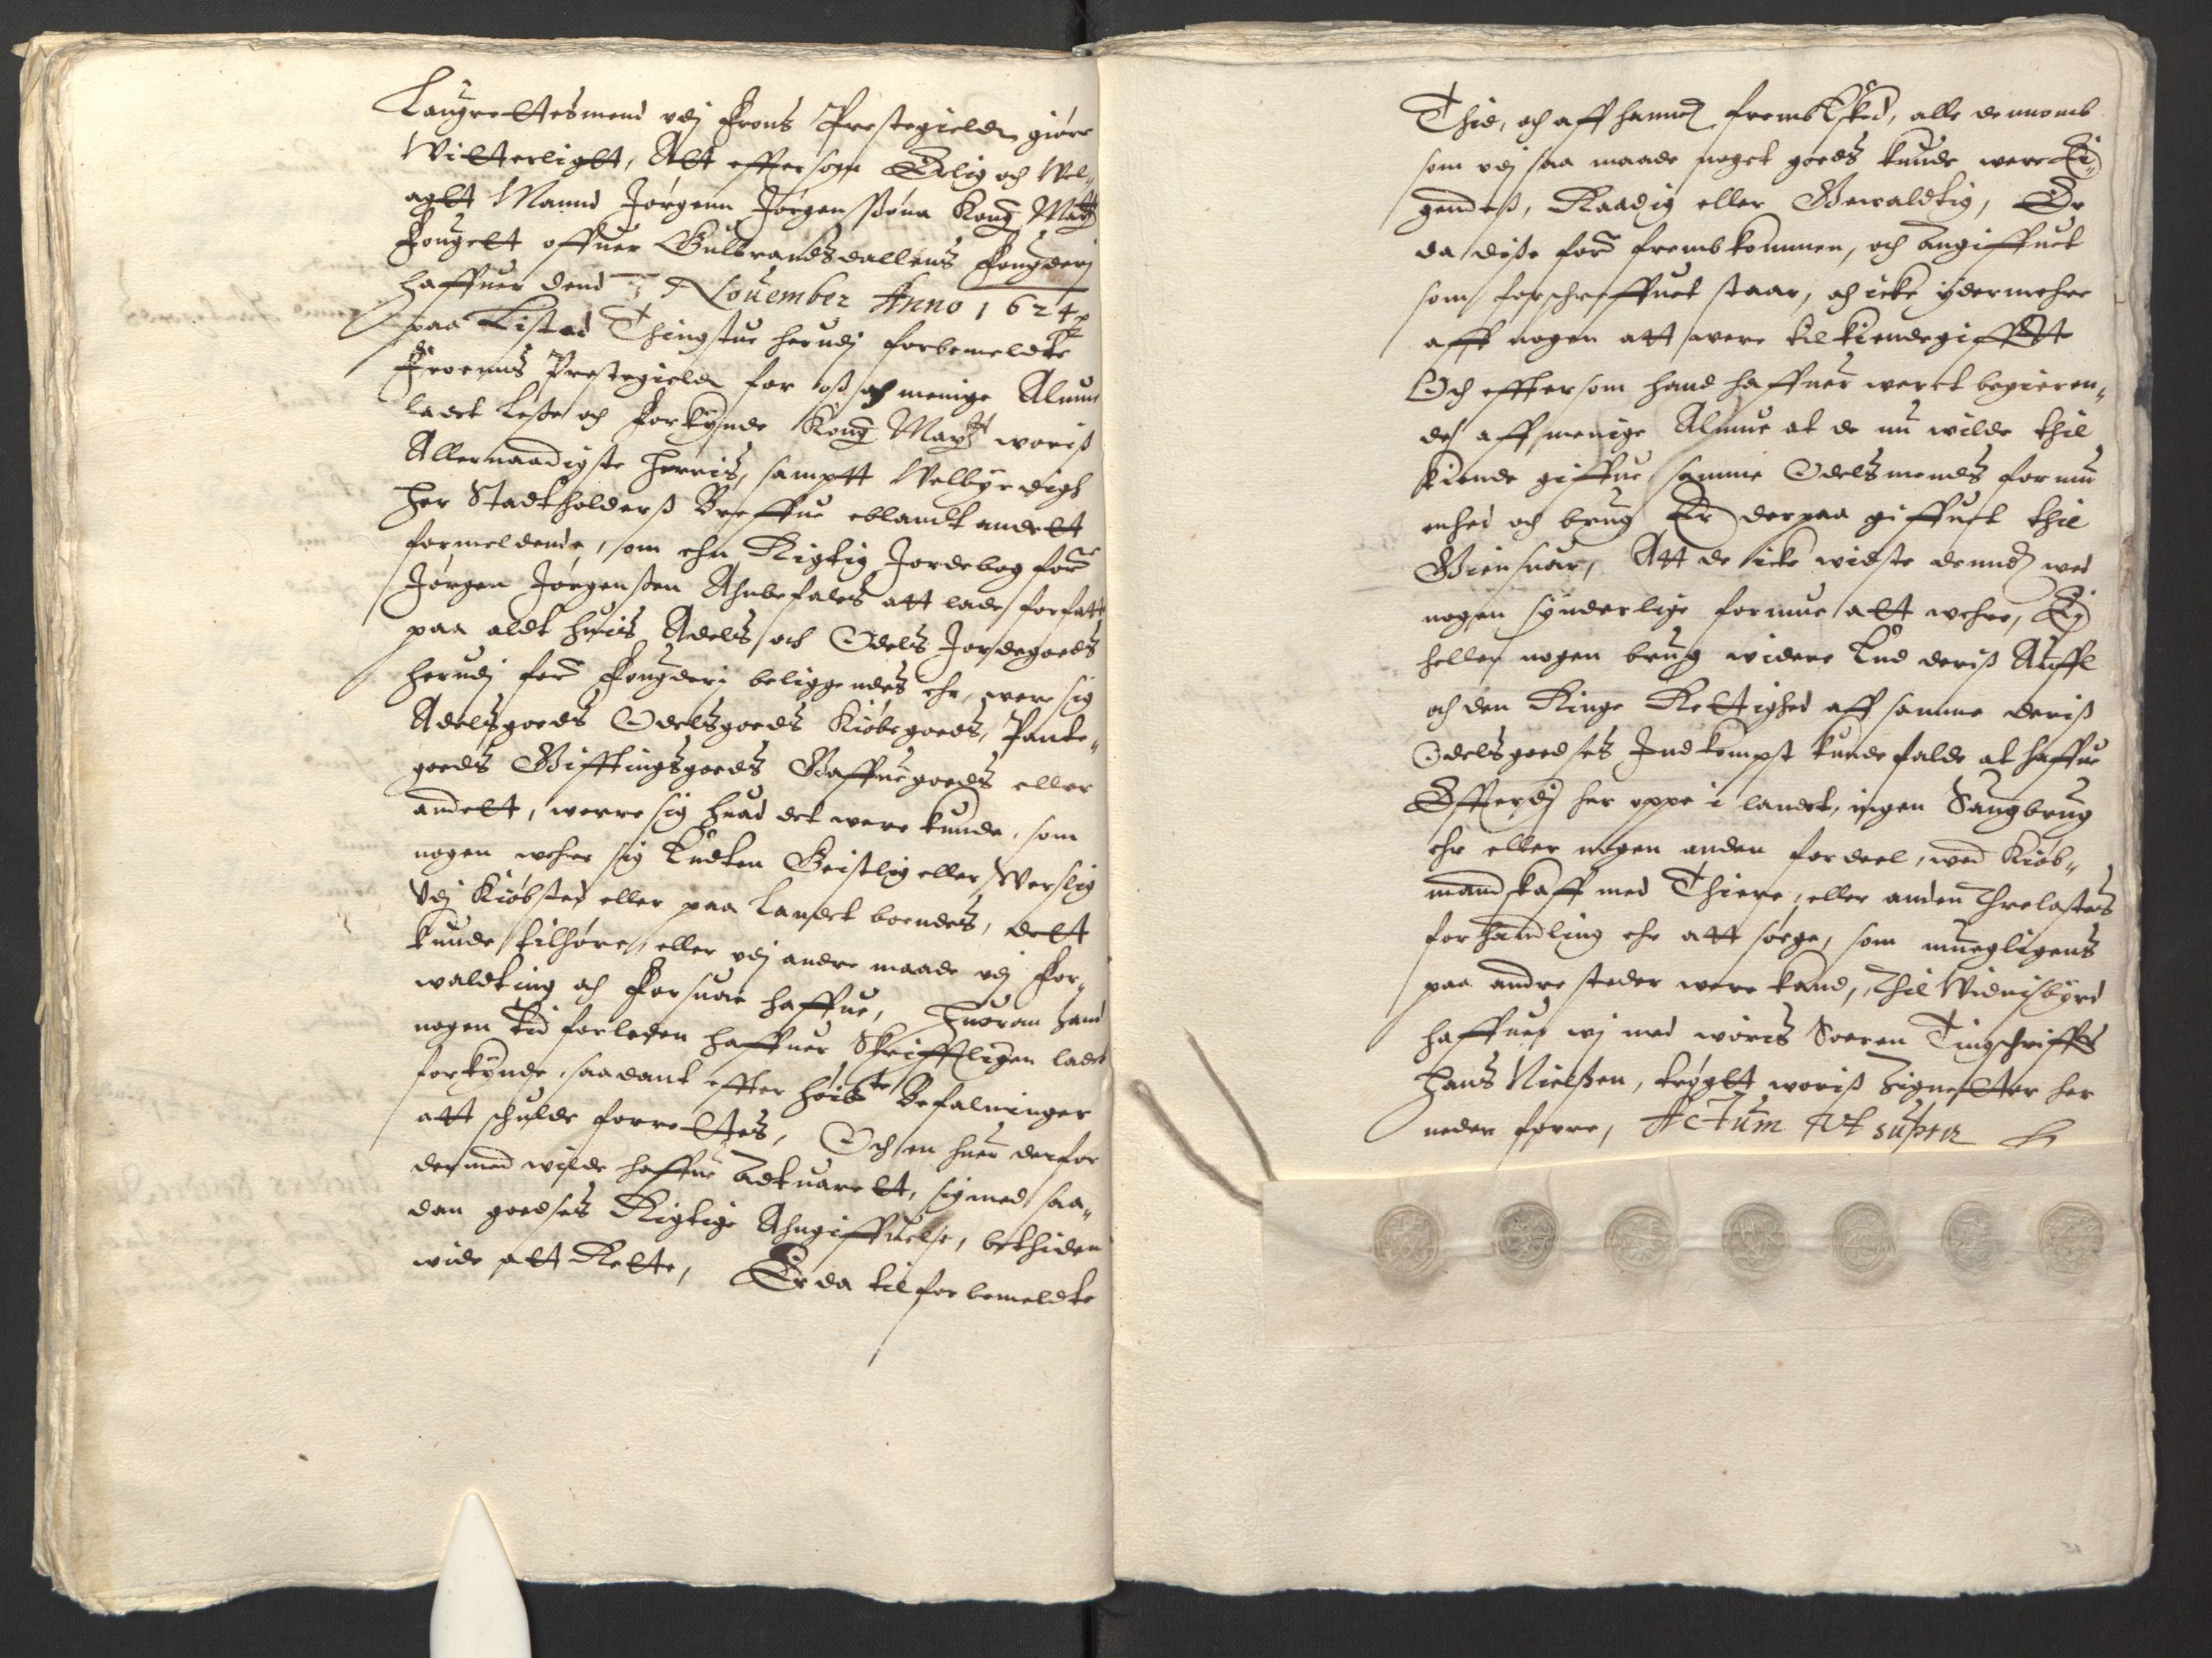 Laugrettesmend vdj Frons Prestegield giøre
Witterligtt, Att effter som Erlig och Wel„
agtt Mannd Jørgenn Jørgenssøna Kong Maytt
Fougett offuer Gulbrandsdallens Fougderj
haffuer dend 3 Nouember Anno 1624
paa Listad Thingstue herudj forbemeldte
Froenns Prestegield for oß och menige Almu
ladet Leße och Forkynde Kong Maytt woriß
Allernaadigste Herris, samptt Welbyrdigh
Her Stadtholderß Breffue eblandt andett
formeldende, om ehn Rigtig Jordebog for:
Jørgen Jørgenßen Ahnbefales att lade forfatt
paa aldt huis Adels och Odels Jordegoeds
herudj for: Fougderj beliggendes ehr, were sig
Adelsgoeds Odelsgoeds Kiøbegoeds, Pante„
goeds Gifftingsgoeds Gaffuegoeds eller
andett, werre sig huad det were kunde, som
nogen wehre sig Endten Geistlig eller Werslig
Vdj Kiøbsted eller paa Landet boendes, dett
kunde tilhøre, eller vdj andre maade vdj For„
waldting och Forsuar haffue, Huorom hand
nogen tid forleden haffuer Skrifftligen ladet
forkynde, saadant effter høibte Befalninger
att schulde forrettes, Och en huer derfor
dermed wilde haffue Adtuarett, sig med saa„
dan goedses Rigtige Ahngiffuelse, bethiden
wide att Rette, Er da til forbemeldte
Thid, och aff hannd frembEsked, alle dennomb
som vdj saa maade noget goeds kunde were Ei„
gendeß, Raadig eller Bewaldtig, Er
da diße for: frembkommen, och Angiffuet
som forschreffuet staar, och icke ydermehre
afft nogen att were tilkiendegiffuett
Och efftersom hand haffuer weret begieren„
des aff menige Almue at de nu wilde thil
kiende giffue, samme Odelsmends formu
enhed och brug Er derpaa giffuet thil
Giensuar, Att de icke widste dennd wed
nogen synderlige formue att wehre, Ej
heller nogen brug widere End deriß Auffl
och den Ringe Rettighed aff samme deriß
Odelsgoedses Jndkompst kunde falde at haffue
Effterdj her oppe i landet, ingen Saugbrug
ehr eller nogen anden fordeel, wed Kiøb„
mandskaff med Thiere, eller anden Threlasters
forhandling ehr att søege, som muegligens
paa andre steder were kand, Thil Widnisbyrd
haffuer wj med woris Soeren Tingschriffr
Hans Nielßen, trøgtt woriß Signetter her
neden forre, Actum Ut supra